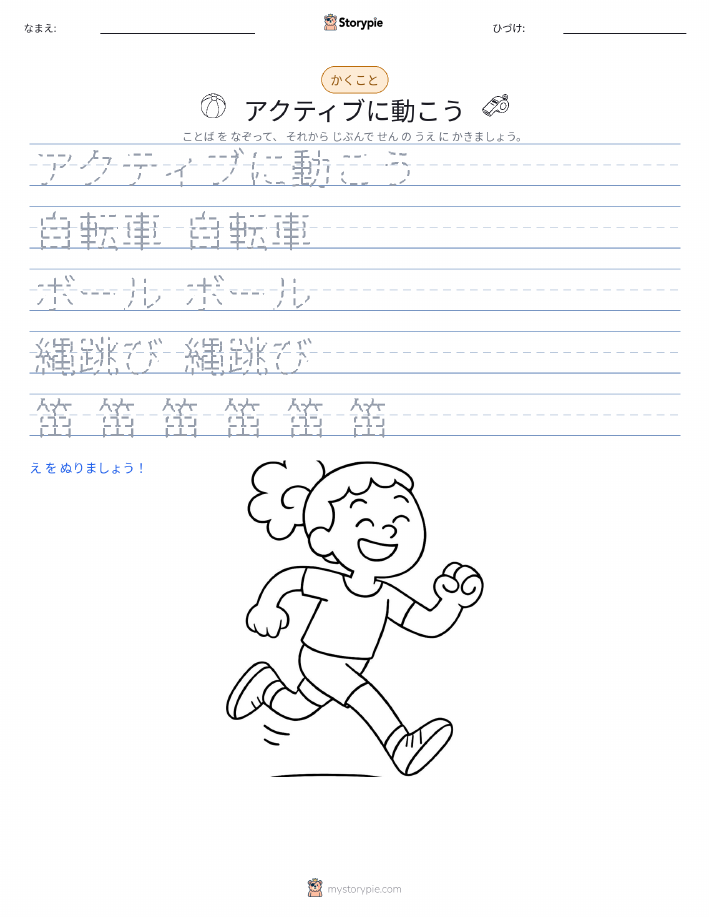 なまえ:
Storypie
ひづけ:
かくこと
アクティブに動こう
ことば を なぞって、 それから じぶんで せん の うえ に かきましょう。
アクティブに動こう
自転車 自転車
ボール ボール
縄跳び 縄跳び
笛 笛 笛 笛 笛 笛
え を ぬりましょう！
mystorypie.com